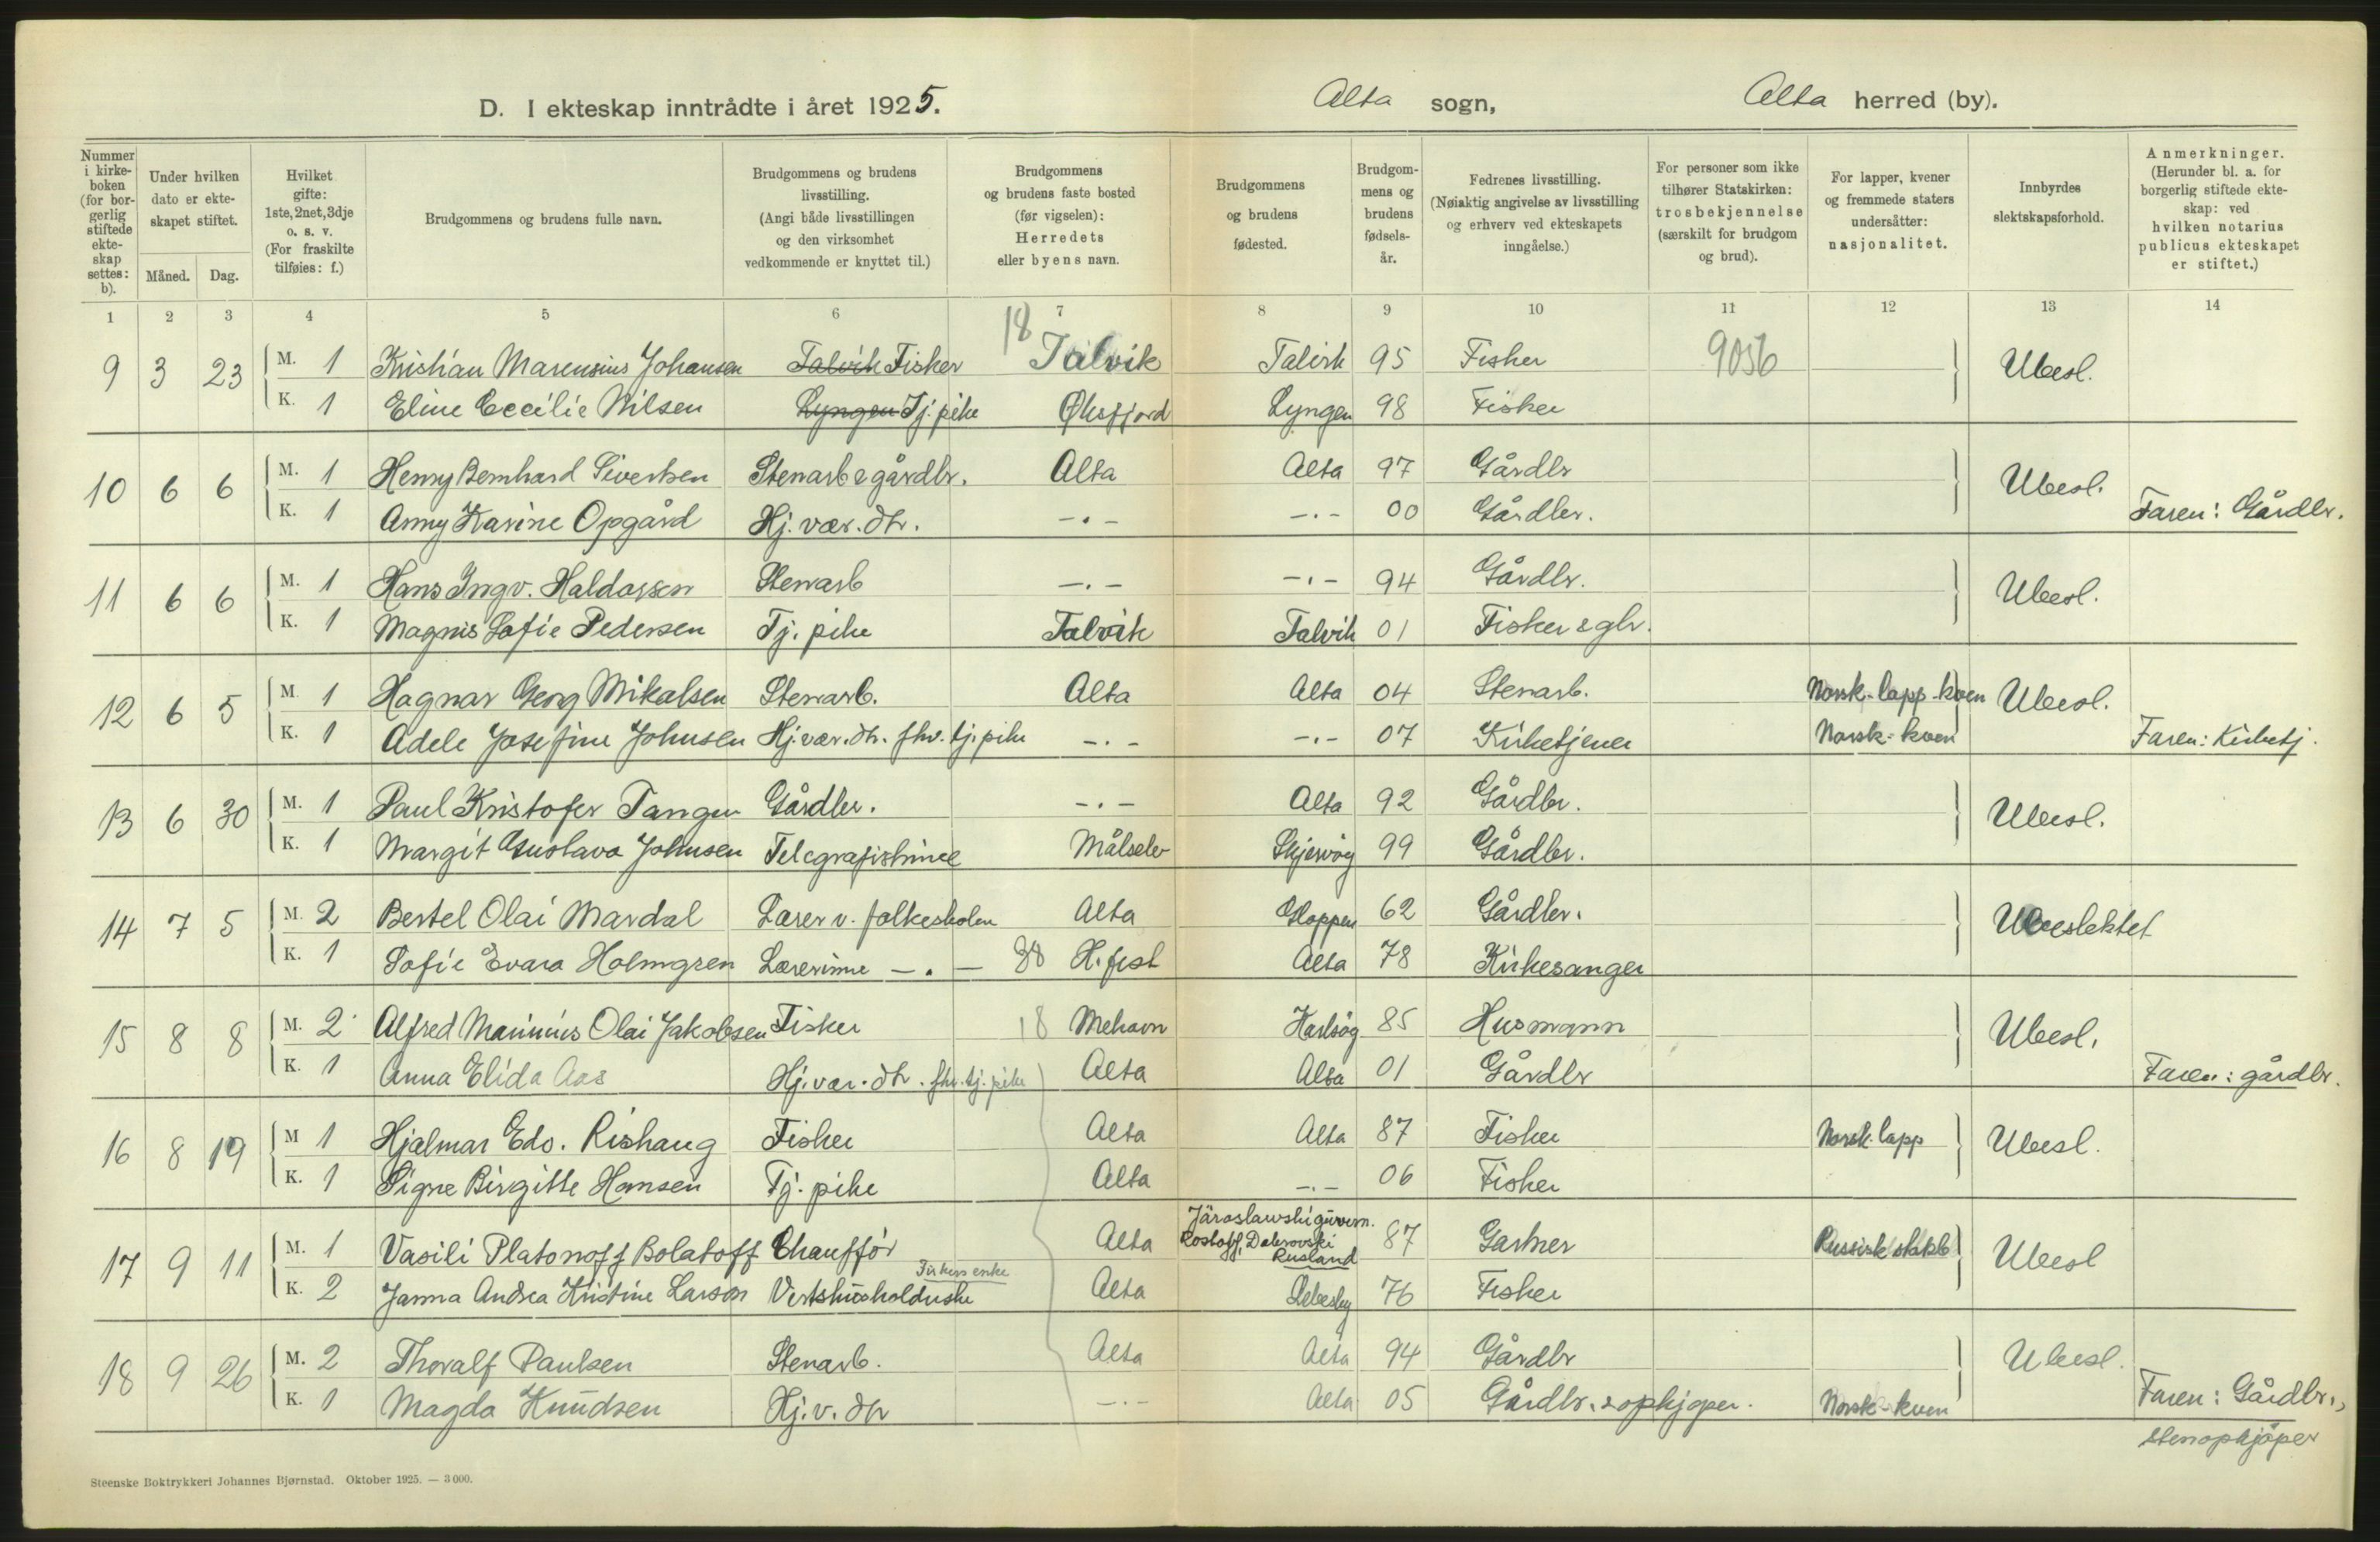 D. I ekteskap inntrådte i året 1925. Alta sogn, Alta herred (by).
Nummer i kirkeboken (for borgerlig stiftede ekteskap settes: b).
Under hvilken dato er ekteskapet stiftet.
Måned. Dag.
Hvilket gifte: 1ste, 2net, 3dje o. s. v. (For fraskilte tilføies: f.)
Brudgommens og brudens fulle navn.
Brudgommens og brudens livsstilling. (Angi både livsstillingen og den virksomhet vedkommende er knyttet til.)
Brudgommens og brudens faste bosted (før vigselen): Herredets eller byens navn.
Brudgommens og brudens fødested.
Brudgommens og brudens fødselsår.
Fedrenes livsstilling. (Nøiaktig angivelse av livsstilling og erhverv ved ekteskapets inngåelse.)
For personer som ikke tilhører Statskirken: trosbekjennelse (særskilt for brudgom og brud).
For lapper, kvener og fremmede staters undersåtter: nasjonalitet.
Innbyrdes slektskapsforhold.
Anmerkninger. (Herunder bl. a. for borgerlig stiftede ekteskap: ved hvilken notarius publicus ekteskapet er stiftet.)
1 2 3 4 5 6 7 8 9 10 11 12 13 14
9 3 23 M. 1 Kristian Marensius Johansen Talvik Fisker 18 Talvik Talvik 95 Fisker 9056 Ubesl.
K. 1 Eline Cecilie Nilsen Lyngen Tj. pike Øksfjord Lyngen 98 Fisker
10 6 6 M. 1 Henry Bernhard Sivertsen Stenarb & gårdbr. Alta Alta 97 Gårdbr Ubesl.
K. 1 Anny Karine Opgård Hj. vær. dtr. -.- -.- 00 Gårdbr. Faren: Gårdbr.
11 6 6 M. 1 Hans Ingv. Haldorsen Stenarb -.- -.- 94 Gårdbr. Ubesl.
K. 1 Magnis Sofie Pedersen Tj. pike Talvik Talvik 01 Fisker & gbr.
12 6 5 M 1 Hagnar Georg Mikalsen Stenarb. Alta Alta 04 Stenarb. Norsk-lapp-kven Ubesl.
K. 1 Adele Josefine Johnsen Hj. vær. dtr. fhv. tj. pike -.- -.- 07 Kirketjener Norsk-kven Faren: Kirketj.
13 6 30 M. 1 Paul Kristofer Tangen Gårdbr. -.- Alta 92 Gårdbr. Ubesl.
K. 1 Margit Gustava Johnsen Telegrafistinne Målselv Skjervøy 99 Gårdbr.
14 7 5 M. 2 Bertel Olai Mardal Lærer v. folkeskolen Alta Gloppen 62 Gårdbr. Ubeslektet
K. 1 Sofie Evara Holmgren Lærerinne -.- H.fest Alta 78 Kirkesanger
15 8 8 M. 2 Alfred Marinius Olai Jakobsen Fisker 18 Mehavn Karlsøy 85 Husmann Ubesl.
K. 1 Anna Elida Aas Hj. vær. dtr. fhv. tj. pike Alta Alta 01 Gårdbr Faren: gårdbr.
16 8 19 M 1 Hjalmar Edv. Rishaug Fisker Alta Alta 87 Fisker Norsk-lapp Ubesl.
K. 1 Signe Birgitte Hansen Tj. pike Alta -.- 06 Fisker
17 9 11 M. 1 Vasili Platonoff Bolatoff Chauffør Alta Järoslawski guvern. Rostoff, Dalerovski Rusland 87 Gartner Russisk Ubesl
K. 2 Janna Andrea Kristine Larson Vertshusholderske Fiskers enke Alta Lebesby 76 Fisker
18 9 26 M. 2 Thoralf Paulsen Stenarb. Alta Alta 94 Gårdbr Ubesl.
K. 1 Magda Knudsen Hj. v. dtr -.- Alta 05 Gårdbr. & opkjøper. Norsk-kven Faren: Gårdbr.,
stenopkjøper
Steenske Boktrykkeri Johannes Bjørnstad. Oktober 1925. — 3 000.